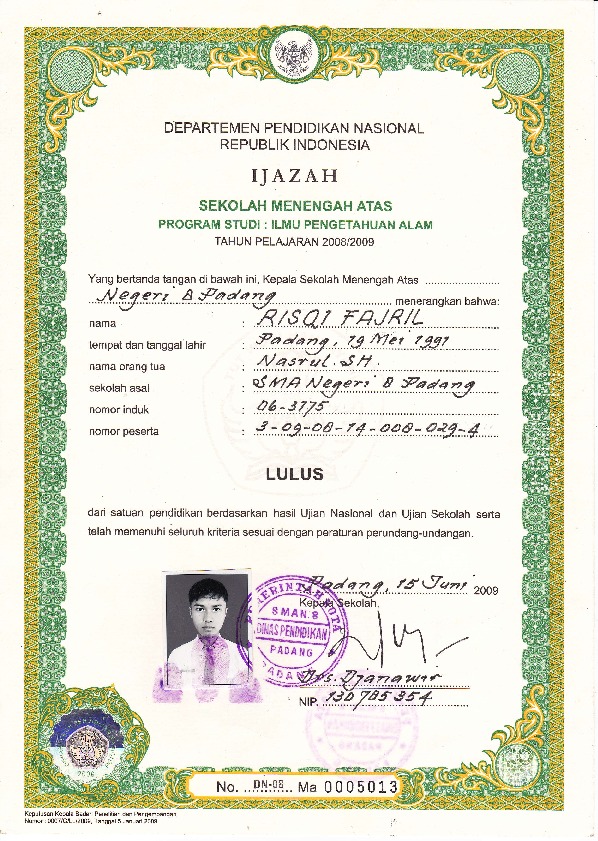 DEPARTEMEN PENDIDIKAN NASIONAL
REPUBLIK INDONESIA
IJAZAH
SEKOLAH MENENGAH ATAS
PROGRAM STUDI : ILMU PENGETAHUAN ALAM
TAHUN PELAJARAN 2008/2009
Yang bertanda tangan di bawah ini, Kepala Sekolah Menengah Atas
Negeri 8 Padang menerangkan bahwa:
nama : RISQI FAJRIL
tempat dan tanggal lahir : Padang, 19 Mei 1991
nama orang tua : Nasrul. SH.
sekolah asal : SMA Negeri 8 Padang
nomor induk : 06-3775
nomor peserta : 3-09-08-14-008-029-4
LULUS
dari satuan pendidikan berdasarkan hasil Ujian Nasional dan Ujian Sekolah serta
telah memenuhi seluruh kriteria sesuai dengan peraturan perundang-undangan.
Padang, 15 Juni 2009
Kepala Sekolah,
PEMERINTAH KOTA
SMAN.8
DINAS PENDIDIKAN
PADANG
PADANG
Drs. Djanawir
NIP. 130 785 354
2009
No. DN-08 Ma 0005013
Keputusan Kepala Badan Penelitian dan Pengembangan
Nomor : 2009, Tanggal 5 Januari 2009